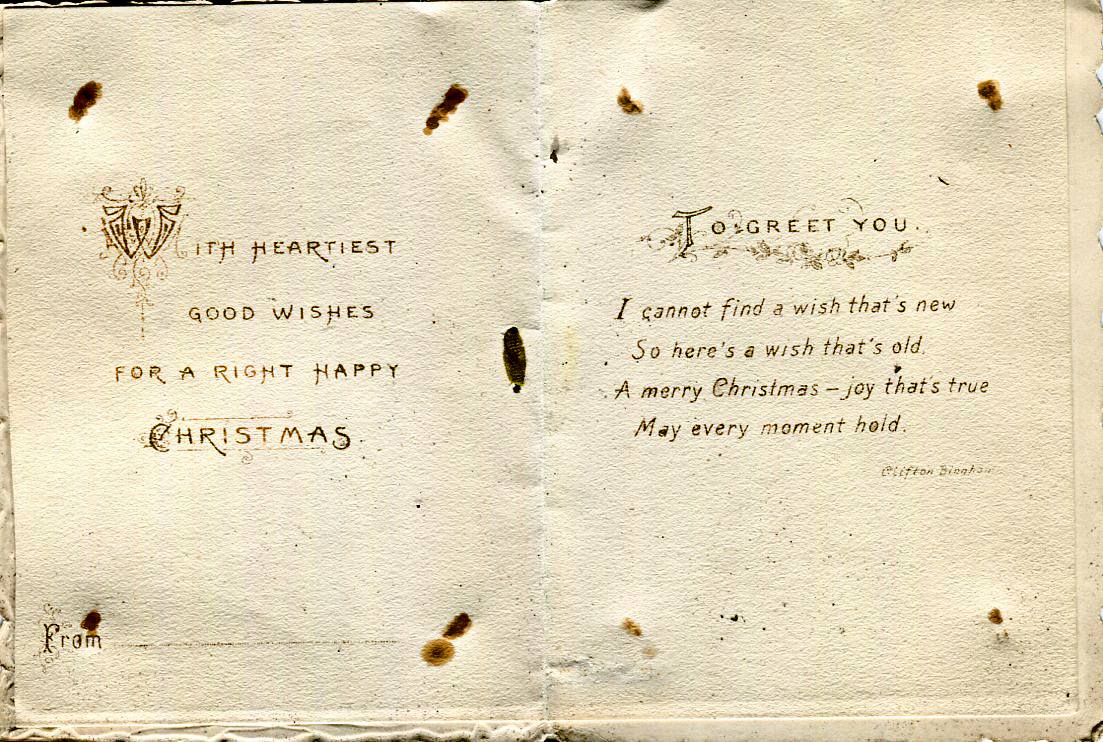 WITH HEARTIEST
GOOD WISHES
FOR A RIGHT HAPPY
CHRISTMAS.
From
TO GREET YOU.
I cannot find a wish that's new
So here's a wish that's old.
A merry Christmas – joy that's true
May every moment hold.
Clifton Bingham